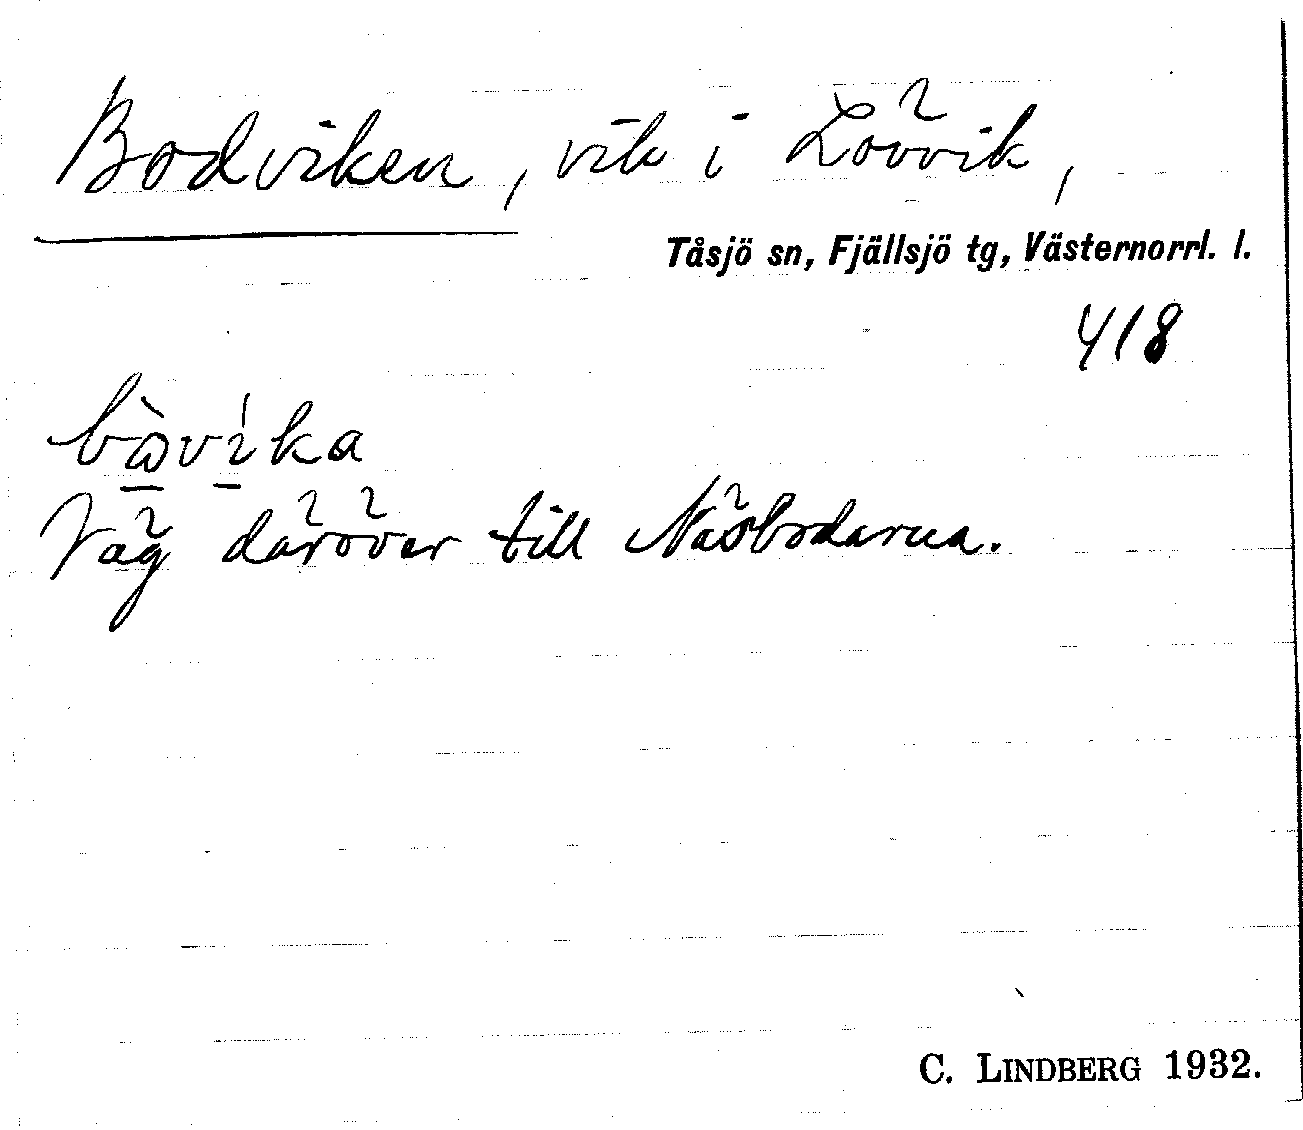 Bodviken, vik i Lövvik,
Tåsjö sn, Fjällsjö tg, Västernorrl. l.
418
bὼvi̍ka
Väg däröver till Näsbodarna.
C. LINDBERG 1932.